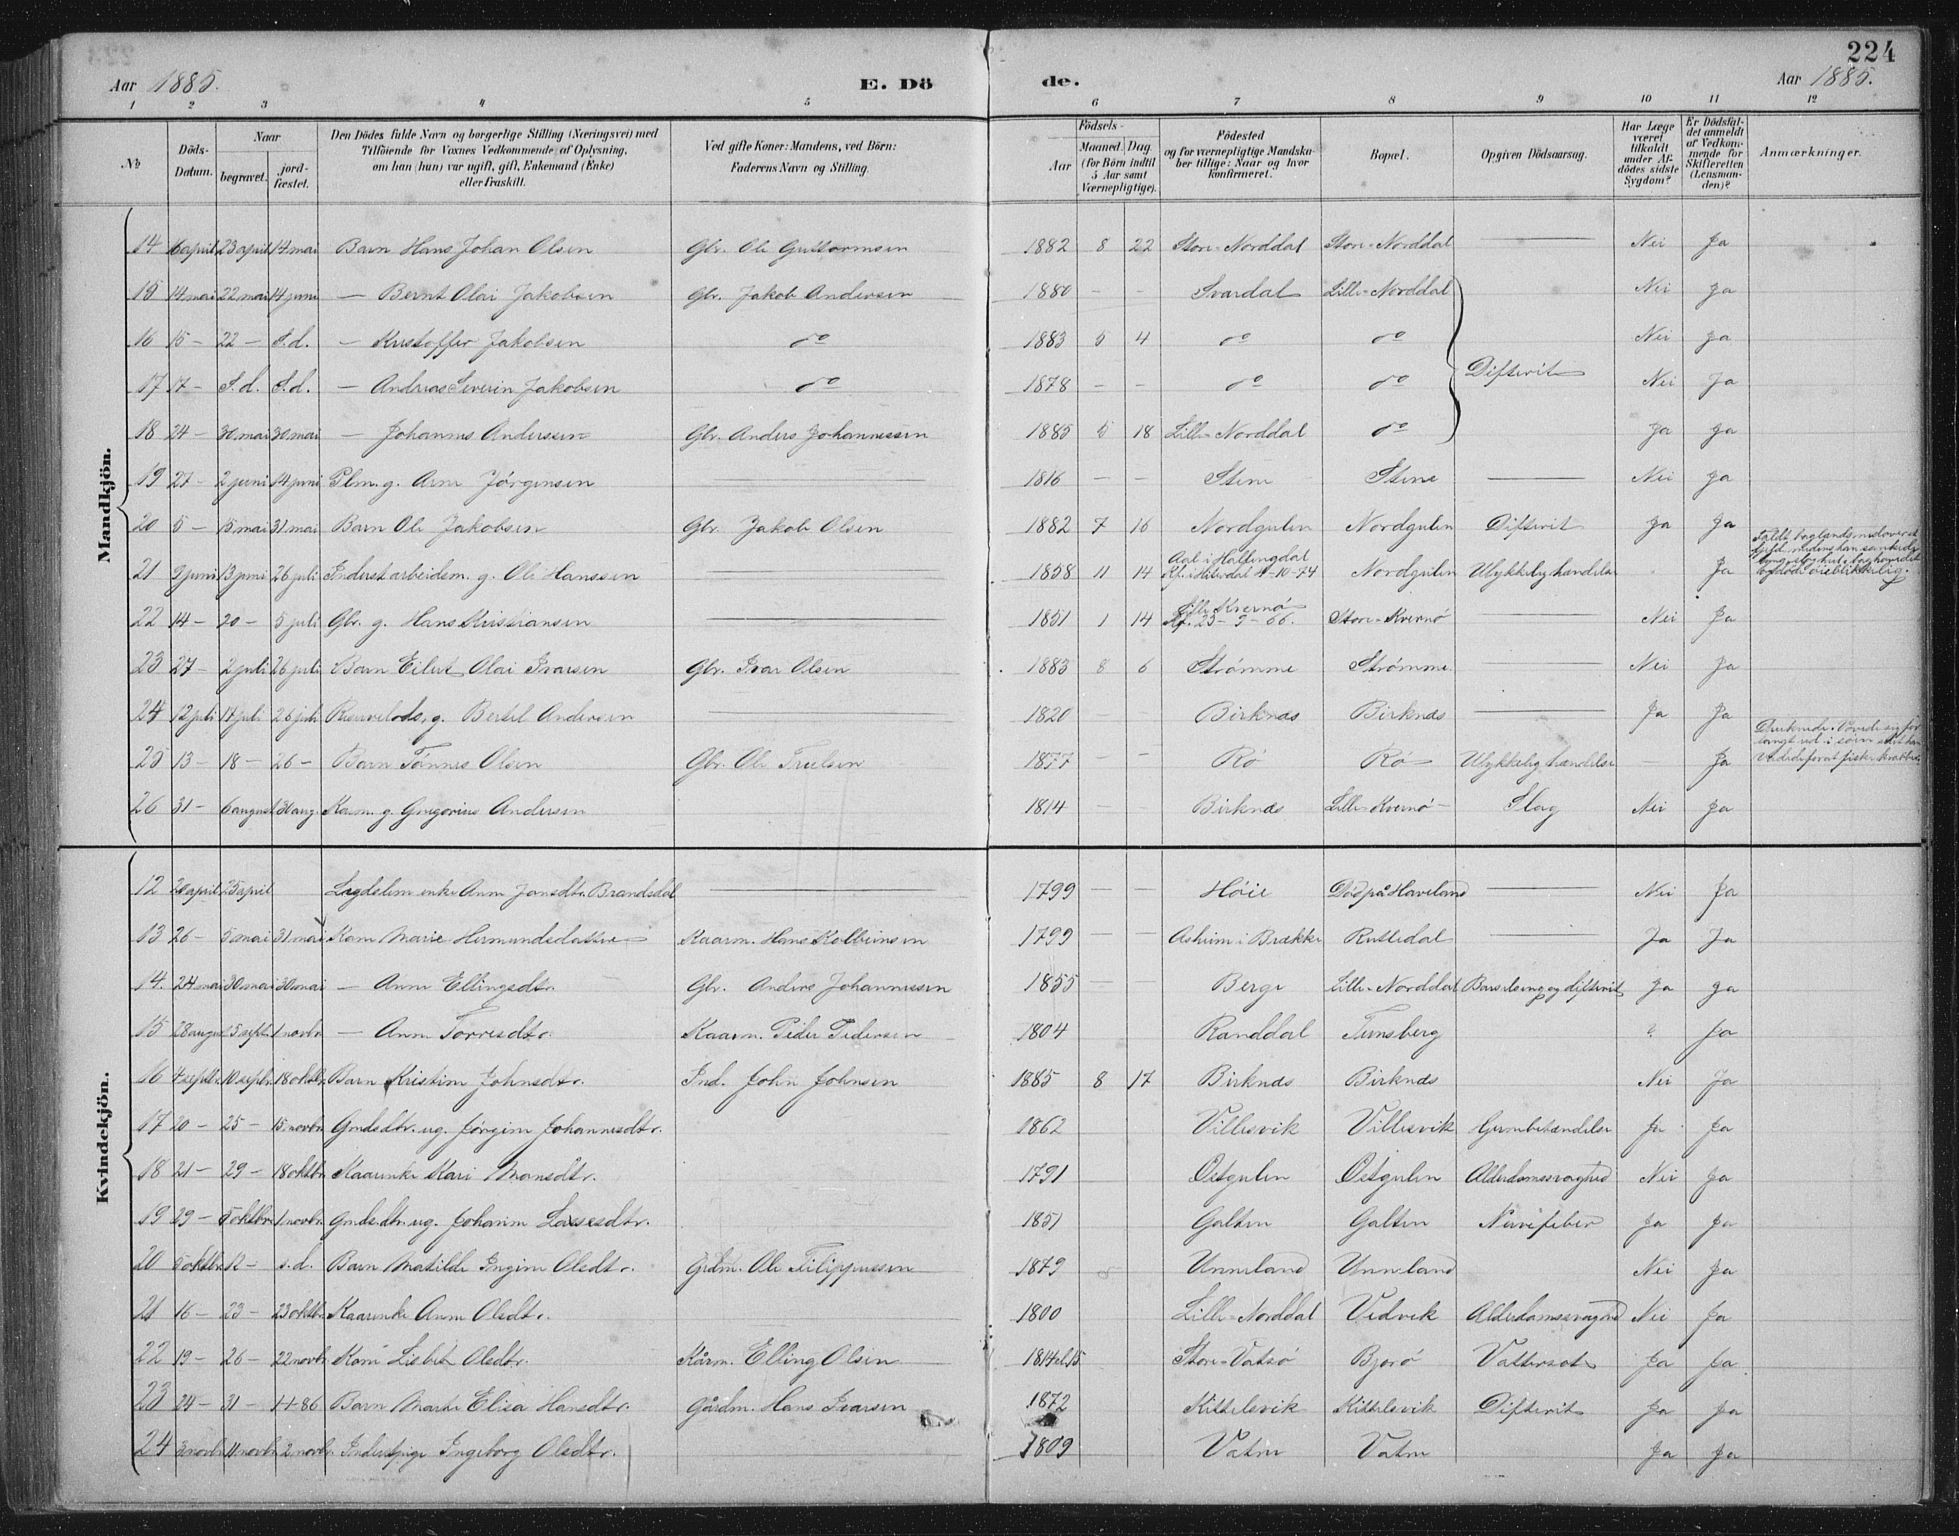 224
Aar 1885. E. Dö de. Aar 1885.
1 2 3 4 5 6 7 8 9 10 11 12
No
Döds-Datum.
Naar begravet. jord-fæstet.
Den Dödes fulde Navn og borgerlige Stilling (Næringsvei) med Tilföiende for Voxnes Vedkommende af Oplysning, om han (hun) var ugift, gift, Enkemand (Enke) eller fraskilt.
Ved gifte Koner: Mandens, ved Börn: Faderens Navn og Stilling.
Födsels- Aar Maaned. Dag. (for Börn indtil 5 Aar samt Værnepligtige).
Födested og for værnepligtige Mandskaber tillige: Naar og hvor konfirmeret.
Bopæl.
Opgiven Dödsaarsag.
Har Læge været tilkaldt under Afdödes sidste Sygdom?
Er Dödsfaldet anmeldt af Vedkommende for Skifteretten (Lensmanden)?
Anmærkninger.
Mandkjön.
14 6 april 23 april 14 mai Barn Hans Johan Olsen Gbr. Ole Guttormsen 1882 8 22 Store-Norddal Store-Norddal — Nei Ja
15 14 mai 22 mai 14 juni — Bernt Olai Jakobsen Gbr. Jakob Andersen 1880 - - Svardal Lille-Norddal Nei Ja
16 15 - 22 - S.d. — Kristoffer Jakobsen do 1883 5 4 do do Nei Ja
17 17 - S.d. S.d. — Andreas Severin Jakobsen do 1878 - - do do Difterit Nei Ja
18 24 - 30 mai 30 mai — Johannes Anderssen Gbr. Anders Johannessen 1885 5 18 Lille-Norddal do Ja Ja
19 27 - 2 juni 14 juni Plm. g. Arne Jörgensen — 1816 - - Stene Stene — Nei Ja
20 5 - 15 mai 31 mai Barn Ole Jakobsen Gbr. Jakob Olsen 1882 7 16 Nordgulen Nordgulen Difterit Ja Ja
21 9 juni 13 juni 26 juli Inderst arbeidsm. g. Ole Hanssen — 1858 11 14 Aal i Hallingdal 4-10-74 Nordgulen Ulykkelig hændelse Ja
22 14 - 20 - 5 juli Gbr. g. Hans Kristiansen — 1851 1 14 Lille Kvernö Kf. 23-9-66. Store-Kvernö — Nei Ja
23 27 - 2 juli 26 juli Barn Eilert Olai Ivarsen Gbr. Ivar Olsen 1883 8 6 Strömme Strömme — Nei Ja
24 12 juli 17 juli 26 juli g. Bertel Andersen — 1820 Birknes Birknes — Ja Ja
25 13 - 18 - 26 - Barn Tönnes Olsen Gbr. Ole Trulsen 1877 - Rö Rö Ulykkelig hændelse — Ja Druknede.
26 31 - 6 august 30 aug. Kaarm. g. Gregorius Andersen 1814 - Birknes Lille-Kvernö Slag Nei Ja
Kvindekjön.
12 20 april 25 april Lægdslem enke Anne Jonsdtr. Brandsdal — 1799 - - Höie Död på Haveland — Nei Ja
13 26 - 5 mai 31 mai Kone Marie Hermundsdatter Kaarm. Hans Kolbeinsen 1799 - - Asheim i Brække Rutledal — Ja Ja
14. 24 mai 30 mai 30 mai — Anne Ellingsdtr. Gbr. Anders Johannessen 1855 - - Berge Lille-Norddal Barselseng og difterit Ja Ja
15 28 august 5 septr. 1 novbr. — Anne Torresdtr. Kaarm. Peder Pedersen 1804 Randdal Tunsberg Ja
16 4 septbr. 10 septbr. 18 oktbr. Barn Kristine Johnsdtr. Ind. John Johnsen 1885 8 17 Birknes Birknes Nei Ja
17 20 - 25 - 15 novbr. Gmdsdtr. ug. Jörgine Johannesdtr. 1862 Villesvik Villesvik Ja Ja
18 21 - 29 - 18 oktbr. Kaarenke Kari Monsdtr. 1791 Östgulen Östgulen Alderdomssvaghed Nei Ja
19 29 - 5 oktbr. 1 novbr. Gmdsdtr. ug. Johanne Lassesdtr. 1851 Galten Galten Nervefeber Ja Ja
20 5 oktbr. 12 - s.d. Barn Matilde Ingine Olsdtr. Grdm. Ole Filippussen 1879 Unneland Unneland Nei Ja
21 16 - 23 - 23 oktbr. Kaarenke Anne Olsdtr. 1800 Lille-Norddal Vedvik Alderdomssvaghed Nei Ja
22 19 - 26 - 22 novbr. Kone Lisbet Olsdtr. Kårm. Elling Olsen 1814 el. 15 Store-Vatsö Byrö Vattersot Ja Ja
23 24 - 31 - 1-1-86 Barn Marte Elisa Hansdtr. Gårdm. Hans Ivarsen 1872 Kittelsvik Kittelsvik Difterit Ja Ja
24 3 novbr. 11 novbr. 2 novbr. Inderstpige Ingeborg Olsdtr. 1809 Vatne Vatne Ja Ja